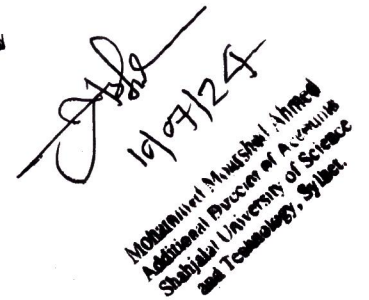 10/07/24
Mohammed Ahmed
Additional Director of Accounts
Shahjalal University of Science
and Technology, Sylhet.